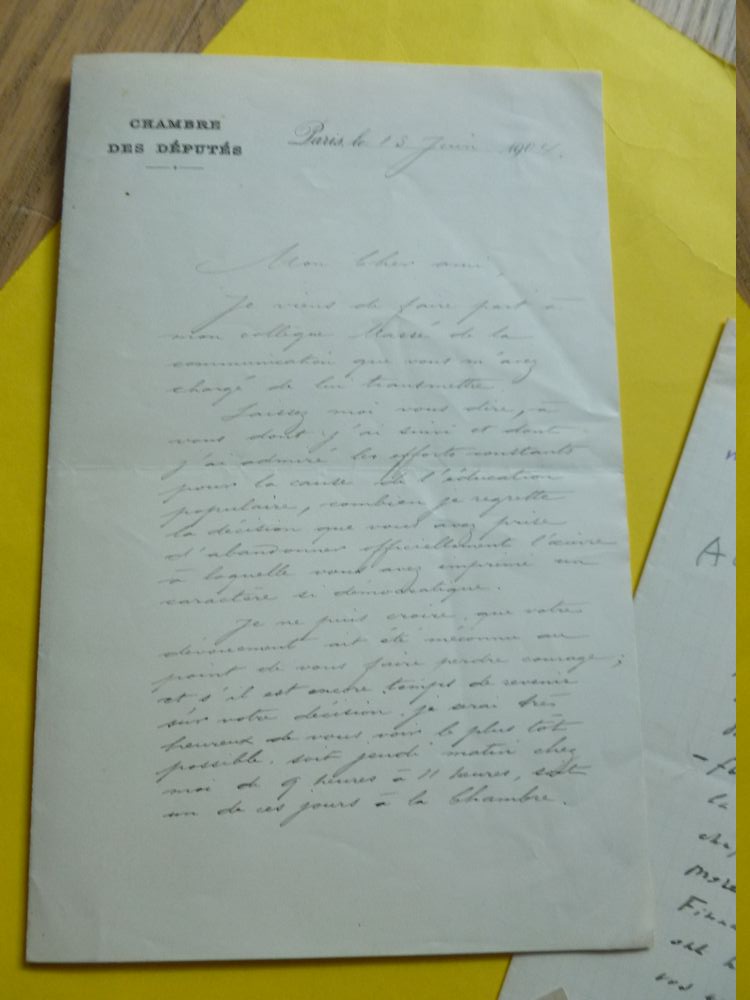 CHAMBRE
DES DÉPUTÉS
Paris, le 13 Juin 1904.
Mon Cher ami,
Je viens de faire part à
mon collègue Massé de la
communication que vous m'avez
chargé de lui transmettre.
Laissez moi vous dire, à
vous dont j'ai suivi et dont
j'ai admiré les efforts constants
pour la cause de l'éducation
populaire, combien je regrette
la décision que vous avez prise
d'abandonner officiellement l'œuvre
à laquelle vous avez imprimé un
caractère si démocratique.
Je ne puis croire que votre
dévouement ait été méconnu au
point de vous faire perdre courage ;
et s'il est encore temps de revenir
sur votre décision, je serai très
heureux de vous voir le plus tôt
possible, soit jeudi matin chez
moi de 9 heures à 11 heures, soit
un de ces jours à la Chambre.
la